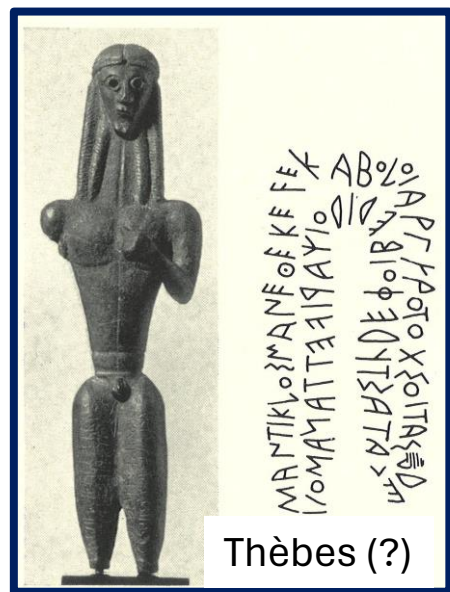 ΜΑΝΤΙΚΛΟΣΜΑΝΕΘΕΚΕϜΕΚΑΒΟΛΟΙΑΡΓΥΡΟΤΟΧΣΟΙΤΑΣ
ΔΕΚΑΤΑΣΤΥΔΕΦΟΙΒΕΔΙΔΟΙΧΑΡΙϜΕΤΤΑΝΑΜΟΙ
Thèbes (?)